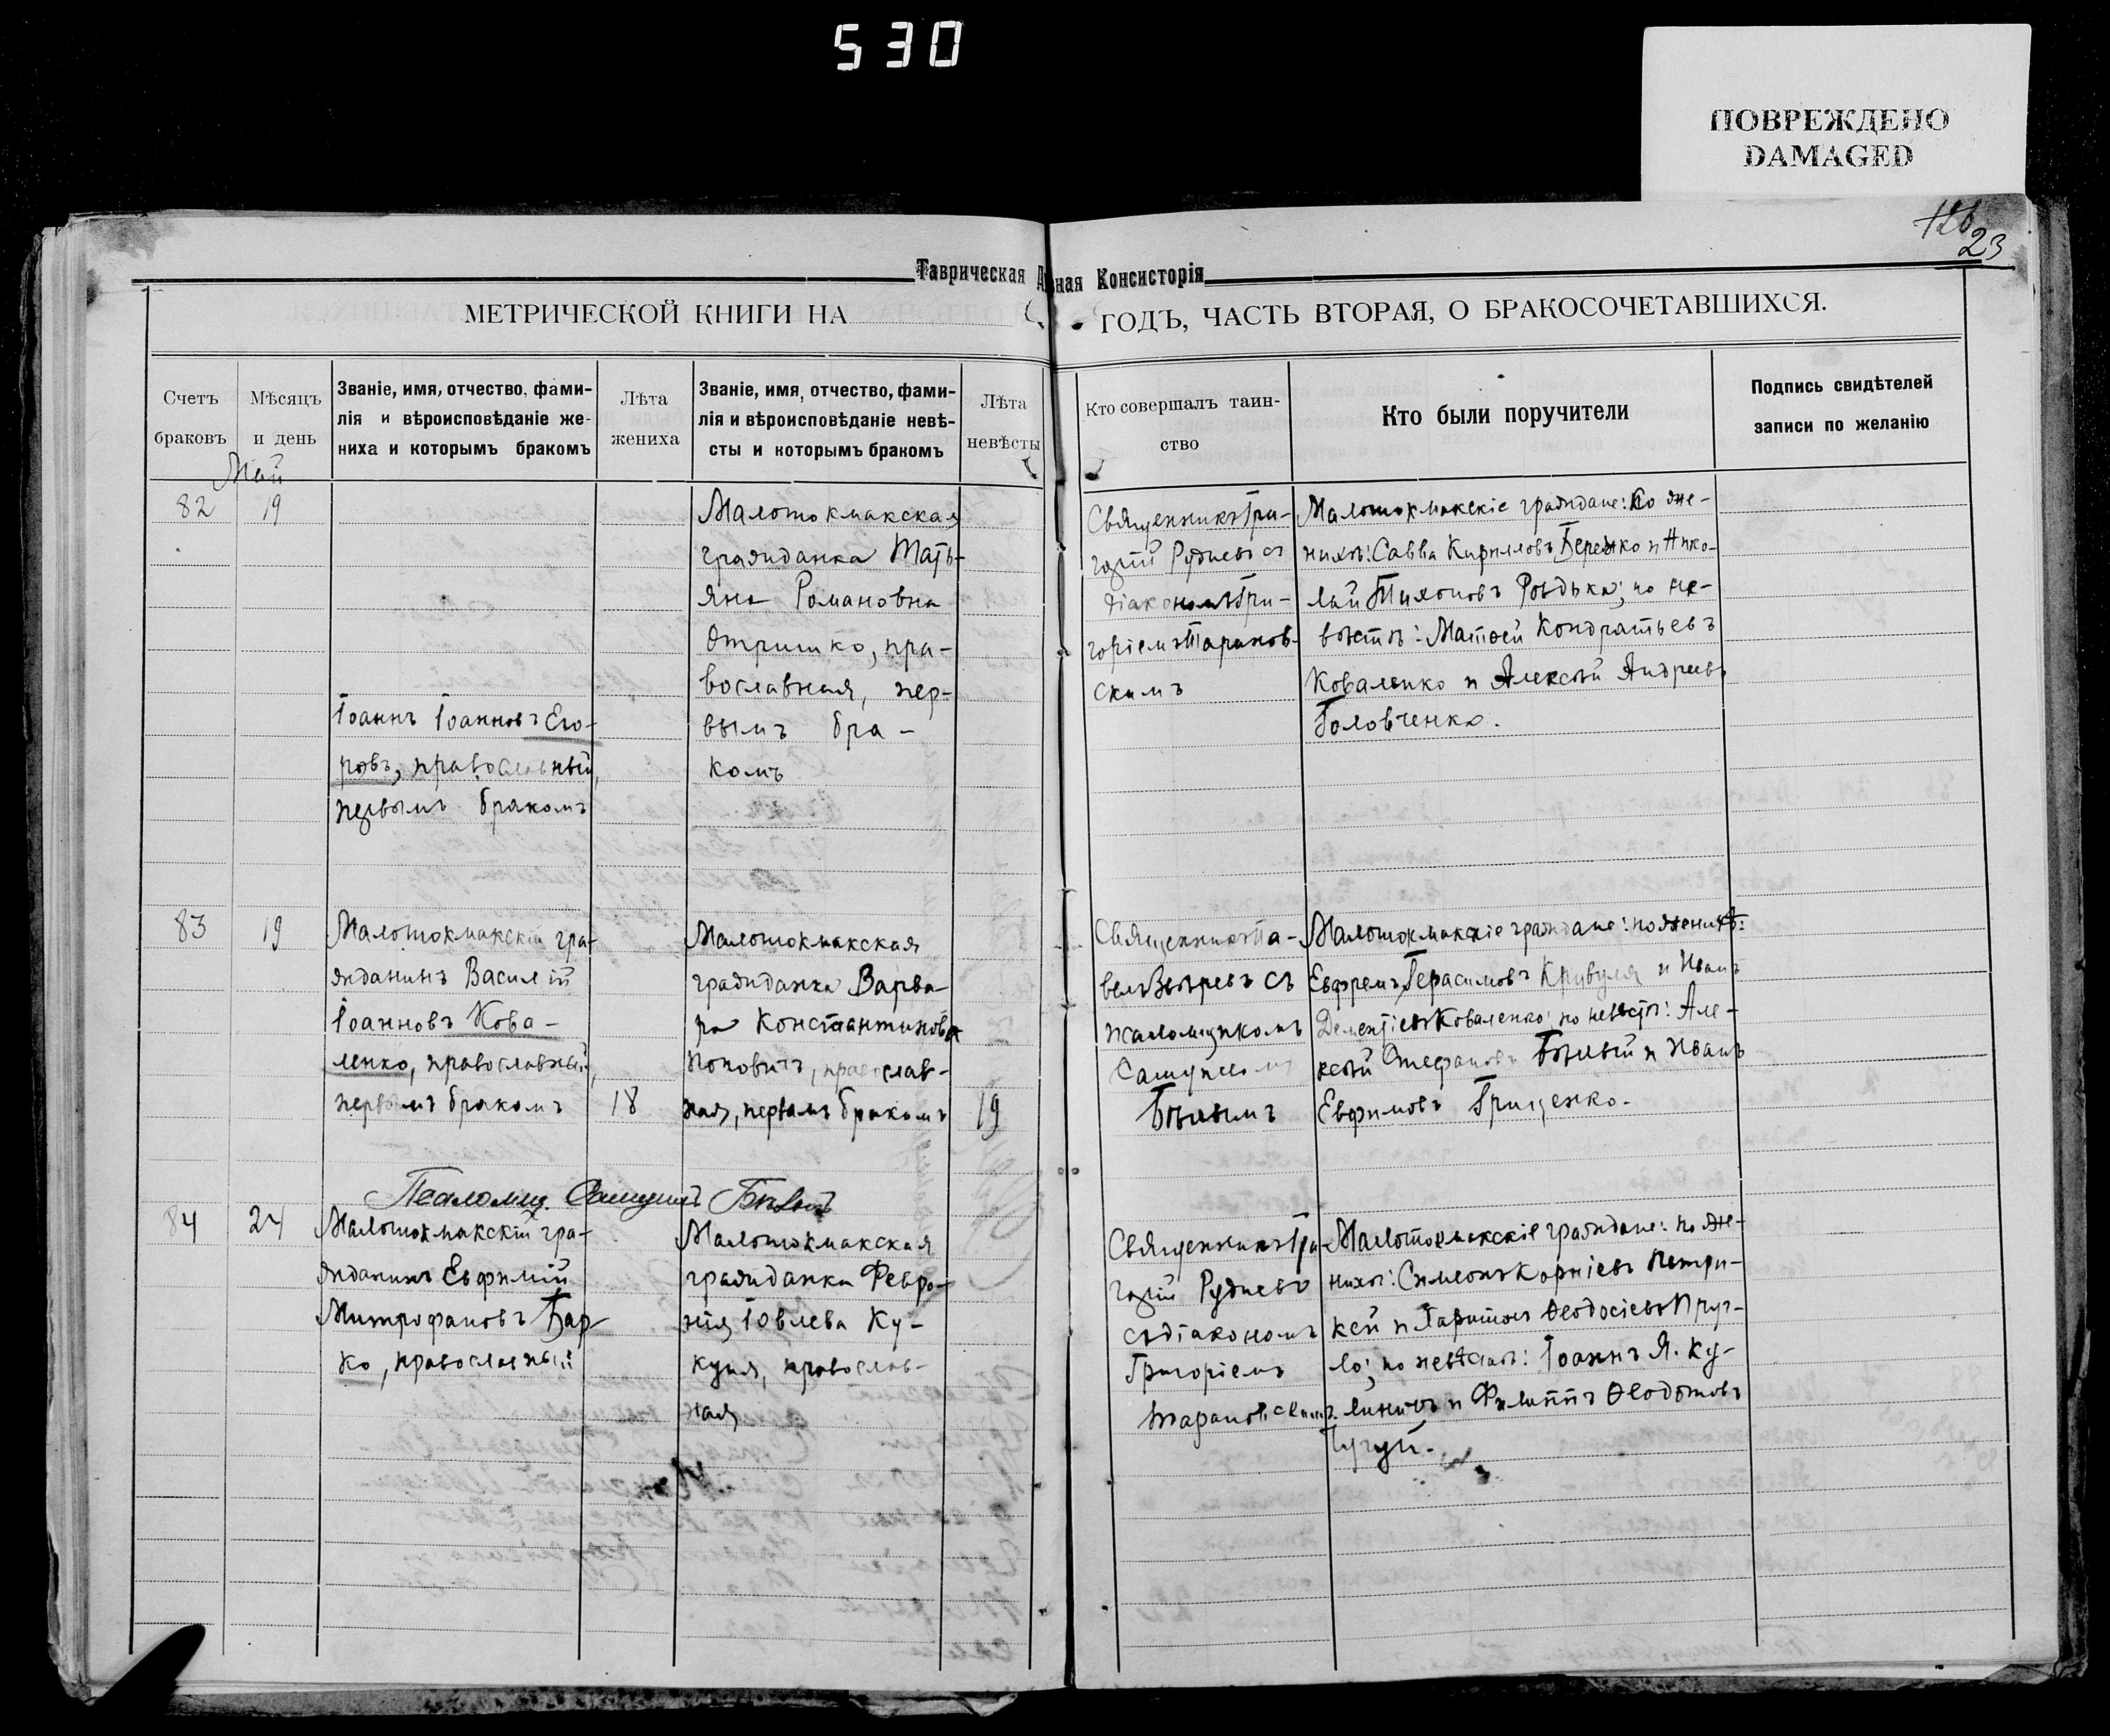 530
ПОВРЕЖДЕНО
DAMAGED
126
23
Таврическая
ная Консисторія
МЕТРИЧЕСКОЙ КНИГИ НА
ГОДЪ, ЧАСТЬ ВТОРАЯ, О БРАКОСОЧЕТАВШИХСЯ.
Счетъ
браковъ
Мѣсяцъ
и день
Званіе, имя, отчество, фами-
лія и вѣроисповѣданіе же-
ниха и которымъ бракомъ
Лѣта
жениха
Званіе, имя, отчество, фами-
лія и вѣроисповѣданіе невѣ-
сты и которымъ бракомъ
Лѣта
невѣсты
Кто совершалъ таин-
ство
Кто были поручители
Подпись свидѣтелей
записи по желанію
Май
82
19
Іоаннъ Іоанновъ Его-
ровъ, православный,
первымъ бракомъ
Малотокмакская
гражданка Тать-
яна Романовна
Отришко, пра-
вославная, пер-
вымъ бра-
комъ
Священникъ Гри-
горій Рудневъ съ
діакономъ Гри-
горіемъ Таранов-
скимъ
Малотокмакскіе граждане: по же-
нихѣ: Савва Кирилловъ Бережко и Нико-
лай Тихоновъ Рѣдька; по не-
вѣстѣ: Матѳей Кондратьевъ
Коваленко и Алексѣй Андреевъ
Головченко.
83
19
Малотокмакскій гра-
жданинъ Василій
Іоанновъ Кова-
ленко, православный,
первымъ бракомъ
18
Малотокмакская
гражданка Варва-
ра Константинова
Поповичъ, православ-
ная, первымъ бракомъ
19
Священникъ Па-
велъ Вѣтревъ съ
псаломщикомъ
Самуиломъ
Бѣлымъ
Малотокмакскіе граждане: по женихѣ:
Евфремъ Герасимовъ Кривуля и Иванъ
Дементіевъ Коваленко; по невѣстѣ: Але-
ксѣй Стефановъ Бѣлый и Иванъ
Евфимовъ Гриценко.
Псаломщ. Самуилъ Бѣлый
84
24
Малотокмакскій гра-
жданинъ Евфимій
Митрофановъ Бар-
ко, православный
Малотокмакская
гражданка Февро-
нія Іовлева Ку-
куня, православ-
ная
Священникъ Гри-
горій Рудневъ
съ діакономъ
Григоріемъ
Тарановскимъ.
Малотокмакскіе граждане: по же-
нихѣ: Симеонъ Корніевъ Петри-
кей и Харитонъ Ѳеодосіевъ Пруг-
ло; по невѣстѣ: Іоаннъ Я. Ку-
линичъ и Филиппъ Ѳеодотовъ
Гугуй.